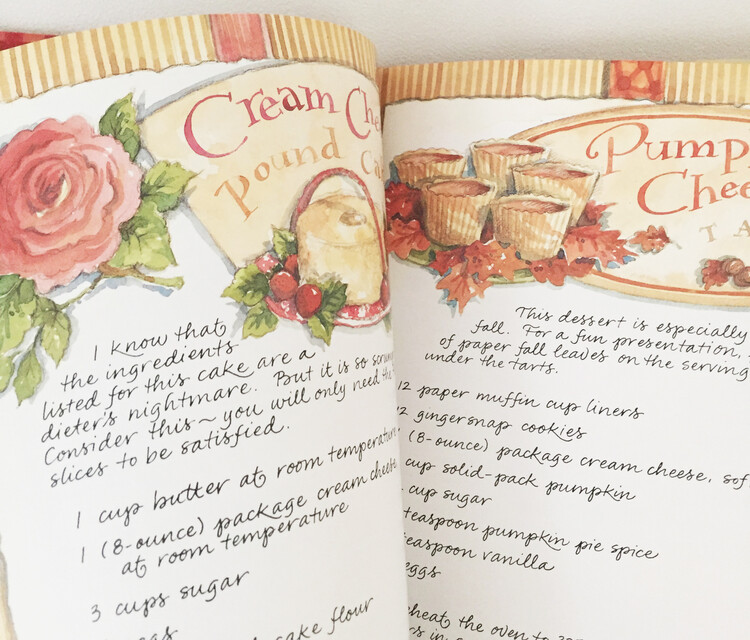 Cream
Pound
I know that
the ingredients
listed for this cake are a
dieter's nightmare. But it is so
Consider this ~ you will only need
slices to be satisfied.
1 cup butter at room temperature
1 (8-ounce) package cream cheese
at room temperature
3 cups sugar
cake flour
This dessert is especially
fall. For a fun presentation,
of paper fall leaves on the serving
under the tarts.
12 paper muffin cup liners
gingersnap cookies
(8-ounce) package cream cheese,
cup solid-pack pumpkin
cup sugar
teaspoon pumpkin pie spice
teaspoon vanilla
eggs
the oven to